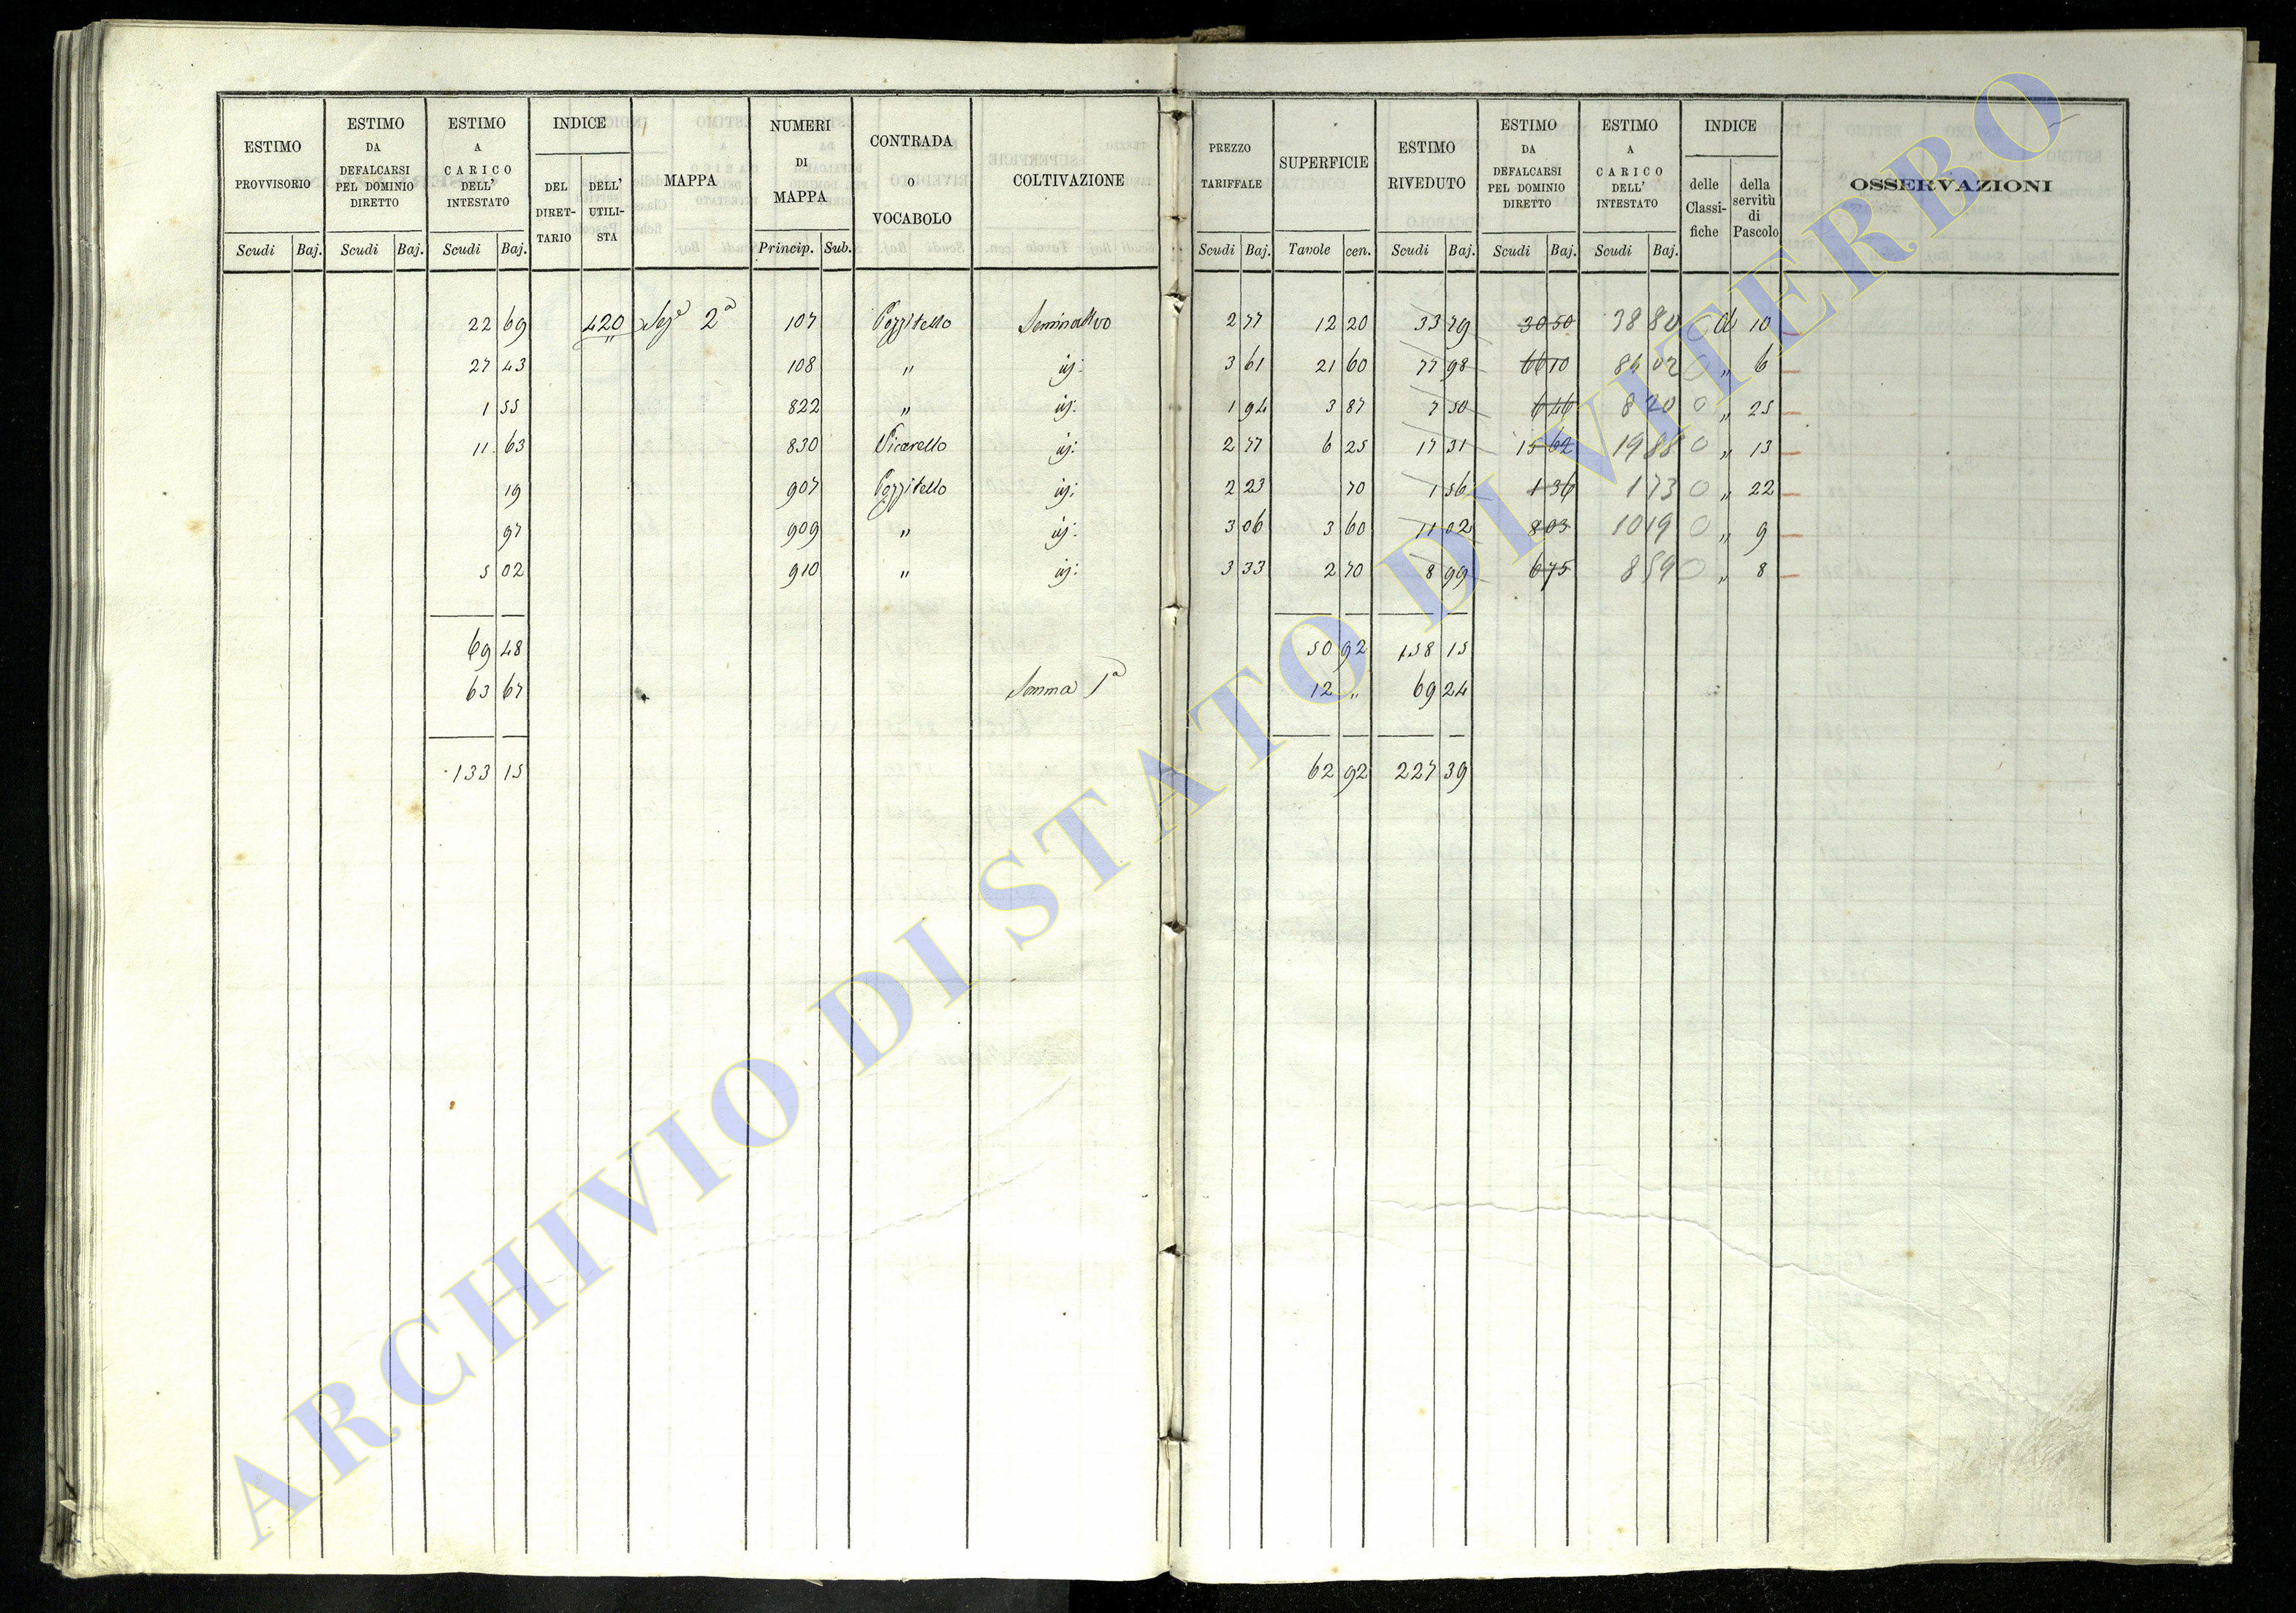 ESTIMO PROVVISORIO Scudi Baj.
ESTIMO DA DEFALCARSI PEL DOMINIO DIRETTO Scudi Baj.
ESTIMO A CARICO DELL' INTESTATO Scudi Baj.
INDICE DEL DIRET- TARIO DELL' UTILI- STA
MAPPA
NUMERI DI MAPPA Princip. Sub.
CONTRADA O VOCABOLO
COLTIVAZIONE
PREZZO TARIFFALE Scudi Baj.
SUPERFICIE Tavole cen.
ESTIMO RIVEDUTO Scudi Baj.
ESTIMO DA DEFALCARSI PEL DOMINIO DIRETTO Scudi Baj.
ESTIMO A CARICO DELL' INTESTATO Scudi Baj.
INDICE delle Classi- fiche della servitù di Pascolo
OSSERVAZIONI
22 69 420 Sez.e 2a 107 Pozzitello Seminativo 2 77 12 20 33 79 30 50 38 80 10
27 43 108 " id: 3 61 21 60 77 98 66 10 " 6
1 55 822 " id: 1 94 3 87 7 50 6 46 8 20 0 " 25
11 63 830 Vicarello id: 2 77 6 25 17 31 15 62 19 88 0 " 13
19 907 Pozzitello id: 2 23 70 1 56 1 36 1 73 0 " 22
97 909 " id: 3 06 3 60 11 02 8 03 10 19 0 " 9
5 02 910 " id: 3 33 2 70 8 99 6 75 8 59 0 " 8
69 48 50 92 158 15
63 67 Somma 1a 12 " 69 24
133 15 62 92 227 39
ARCHIVIO DI STATO DI VITERBO